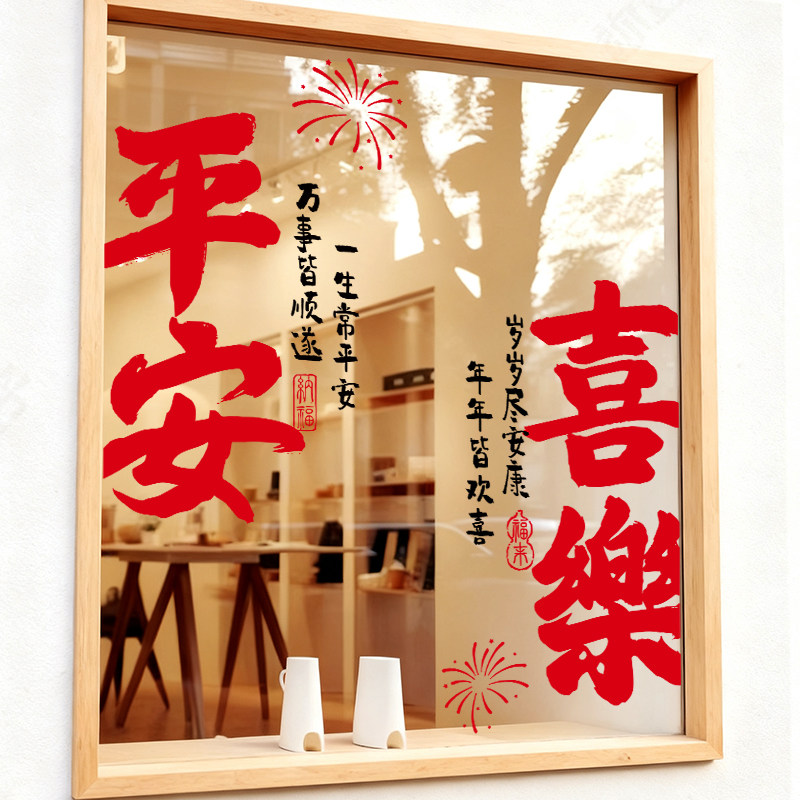 平安
万事皆顺遂
一生常平安
纳福
喜樂
岁岁尽安康
年年皆欢喜
福来